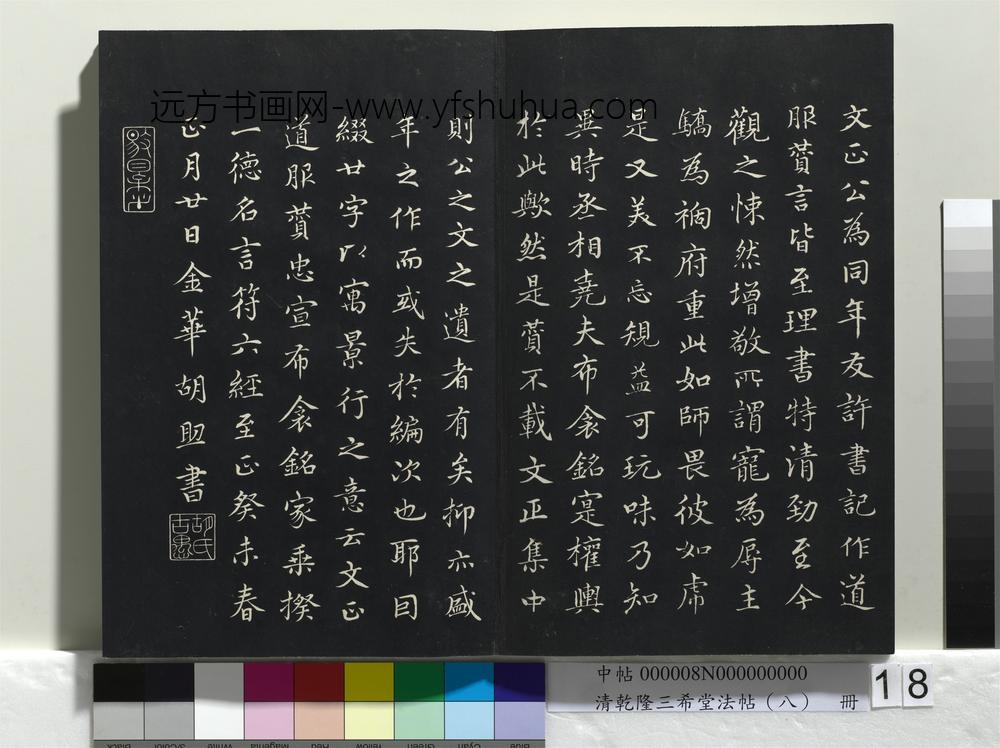 文正公為同年友許書記作道
服賛言皆至理書特清勁至今
觀之悚然增敬所謂寵為辱主
驕為禍府重此如師畏彼如虎
是又美不忘規益可玩味乃知
異時丞相堯夫布衾銘寔權輿
於此歟然是賛不載文正集中
則公之文之遺者有矣抑亦盛
年之作而或失於編次也耶因
綴廿字以寓景行之意云文正
道服賛忠宣布衾銘家乗揆
一德名言符六經至正癸未春
正月廿日金華胡助書
胡氏
古愚
远方书画网-www.yfshuhua.com
中帖 000008N000000000
清乾隆三希堂法帖（八） 冊
18
Black
3/Color
White
Magenta
Red
Yellow
Green
Cyan
Blue